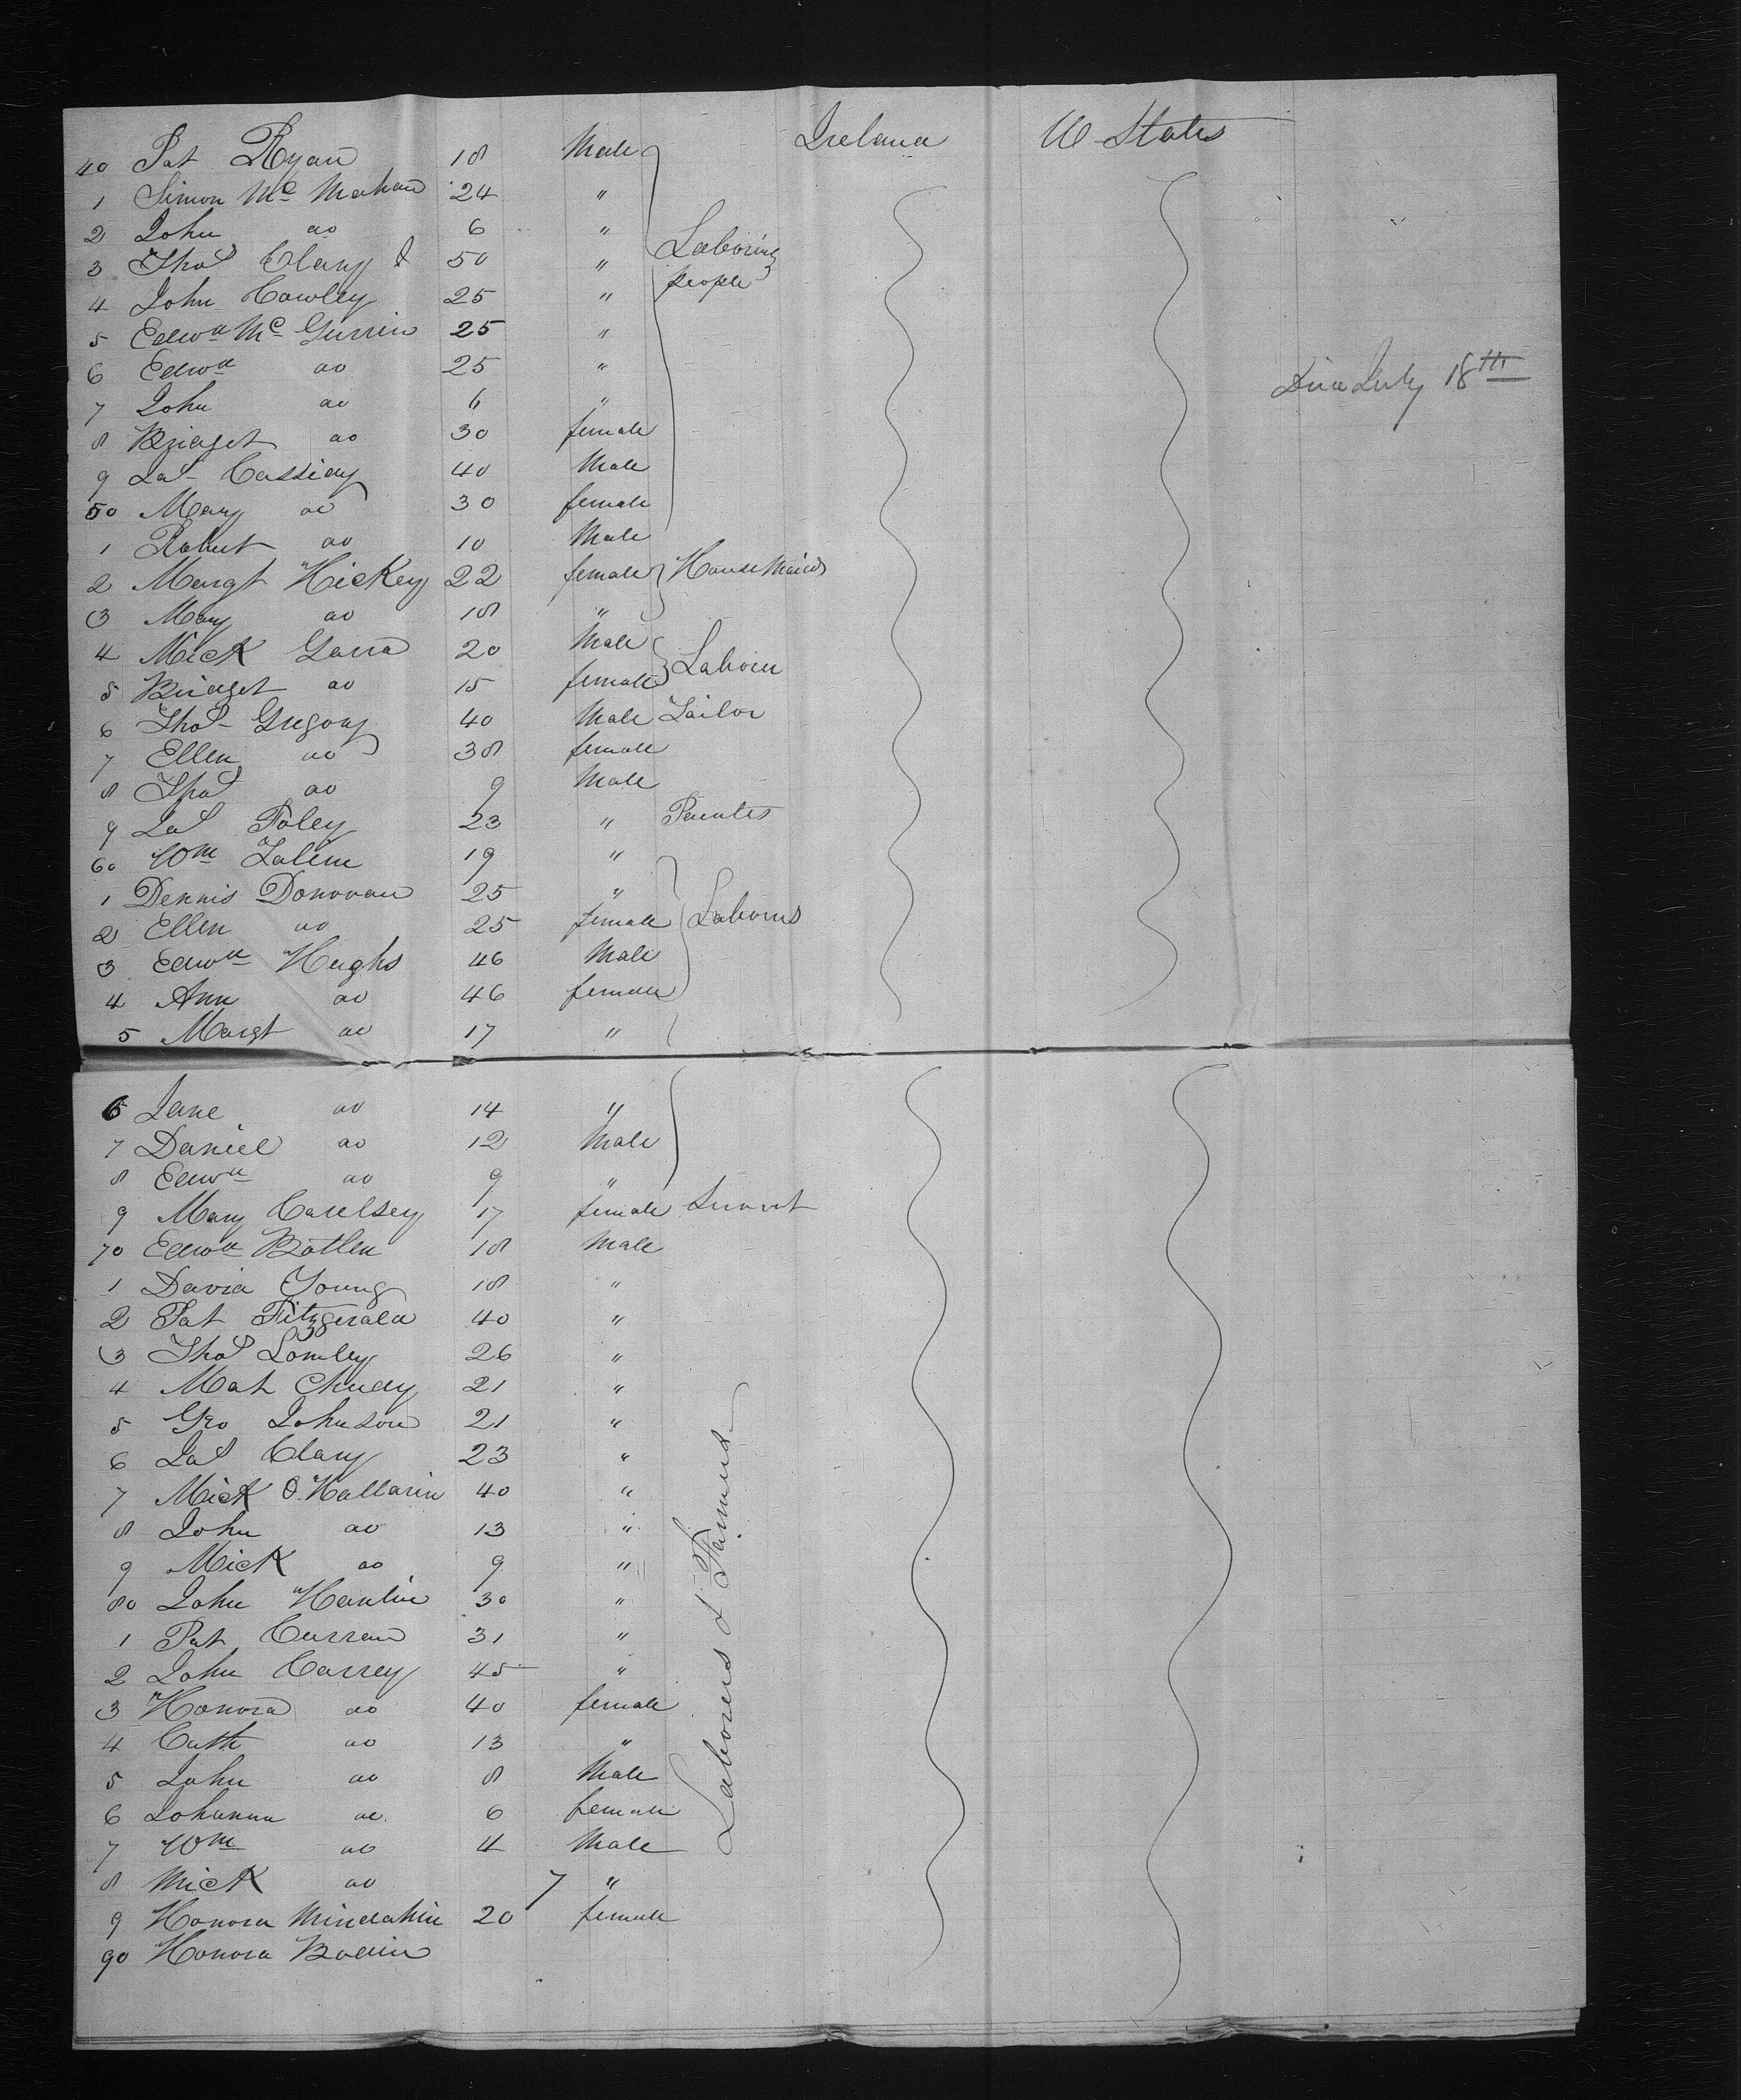 40 Pat Ryan 18 Male Ireland U States
1 Simon Mc Mahan 24 "
2 John do 6 " Laboring
3 Thos Clary 50 " people
4 John Cowley 25 "
5 Edwd Mc Gurrin 25 "
6 Edwd do 25 " Died July 18th
7 John do 6 "
8 Bridget do 30 female
9 Jas Cassidy 40 Male
50 Mary do 30 female
1 Robert do 10 Male
2 Margt Hickey 22 female House Maids
3 Mary do 18 "
4 Mick Garra 20 Male Laborer
5 Bridget do 15 female
6 Thos Gregory 40 Male Tailor
7 Ellen do 38 female
8 Thos do 9 Male
9 Jas Foley 23 " Painter
60 Wm 19 "
1 Dennis Donovan 25 "
2 Ellen do 25 female Laborers
3 Edwd Hughs 46 Male
4 Ann do 46 female
5 Margt do 17 "
6 Jane do 14 "
7 Daniel do 12 Male
8 Edwd do 9 "
9 Mary 17 female Servant
70 Edwd Botler 18 Male
1 David Young 18 "
2 Pat Fitzgerald 40 "
3 Thos Lomley 26 "
4 Mat 21 "
5 Geo Johnson 21 "
6 Jas Clary 23 "
7 Mick O Hallarin 40 "
8 John do 13 "
9 Mick do 9 "
80 John Hanlin 30 "
1 Pat Curran 31 "
2 John Carrey 45 "
3 Honora do 40 female
4 Cath do 13 "
5 John do 8 Male
6 Johanna do 6 female
7 Wm do 4 Male
8 Mick do 7 "
9 Honora 20 female
90 Honora
Laborers &